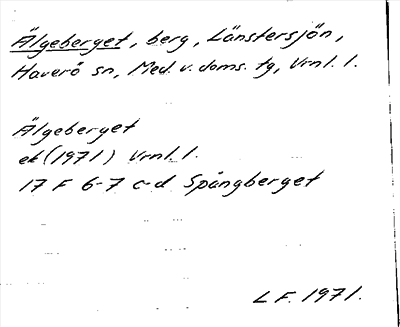 Älgeberget, berg, Länstersjön,
Haverö sn, Med. v. doms. tg, Vrnl. l.
Älgeberget
ek (1971) Vrnl. l.
17 F 6-7 c-d Spångberget
L F. 1971.